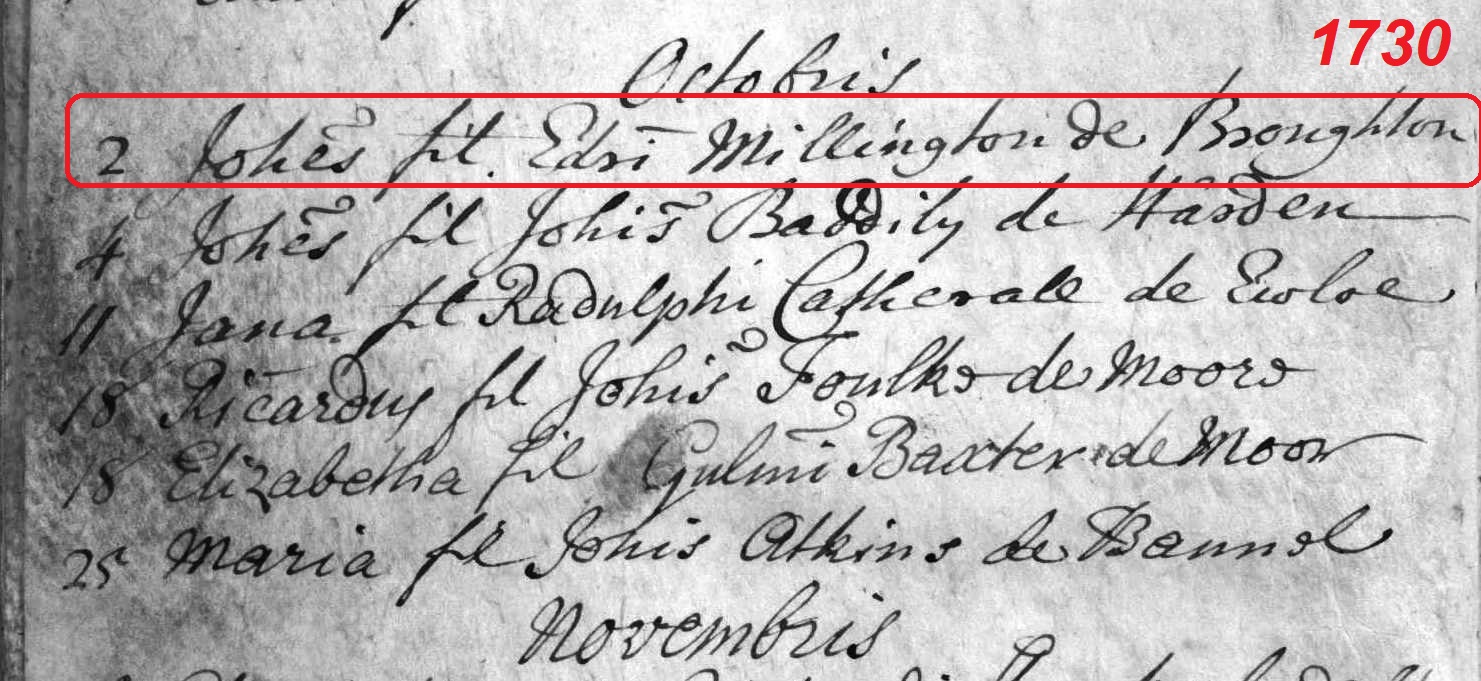 1730
Octobris
2 Johēs fil. Edri Millington de Broughton
4 Johēs fil Johis Baddily de Harden
11 Jana fil Radulphi Catherall de Ewloe
18 Ricardus fil Johis Foulks de Moore
18 Elizabetha fil Gulmi Baxter de Moor
25 Maria fil Johis Atkins de Bannel
Novembris